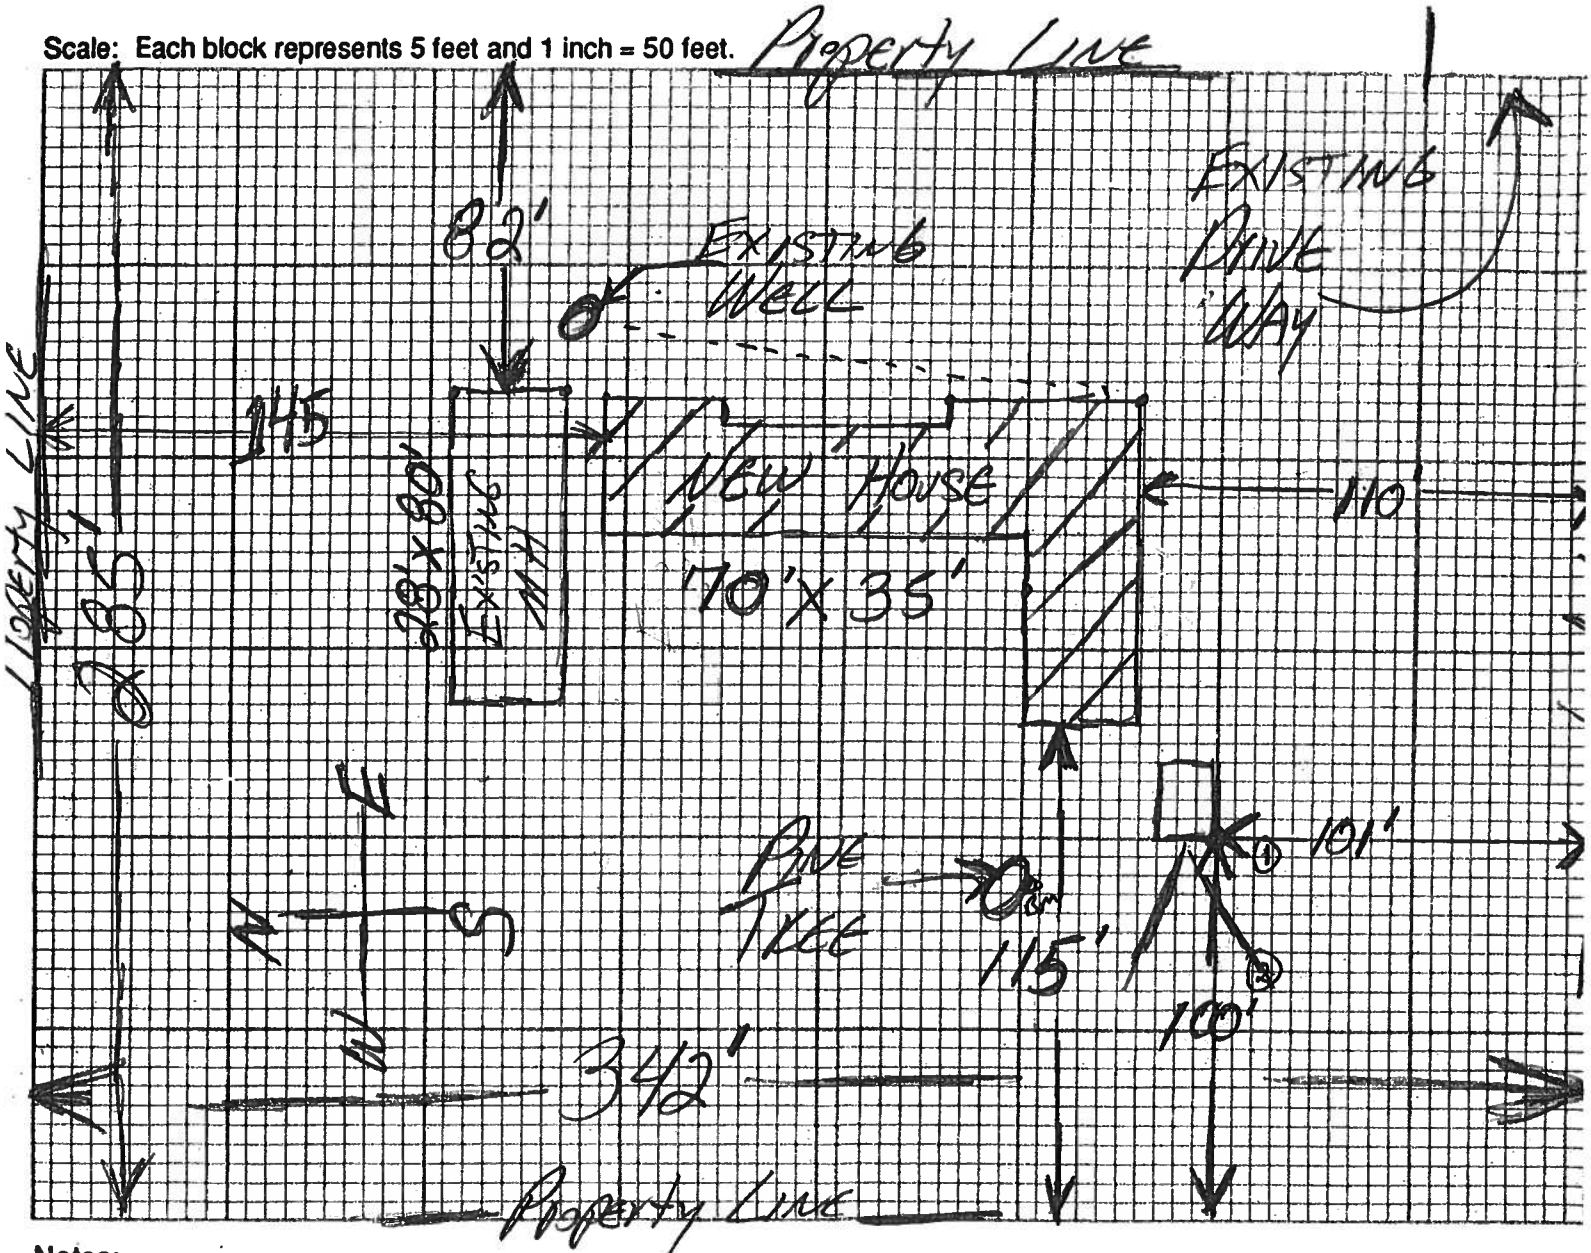 Scale: Each block represents 5 feet and 1 inch = 50 feet.
Property LINE
EXISTING
DRIVE
WAY
82'
EXISTING
WELL
Property LINE
145
285'
28' X 80'
EXISTING
MH
NEW HOUSE
70' X 35'
110'
E
N
S
W
PINE
TREE
BM
115'
101'
1
2
100'
342'
Property LINE
Notes: